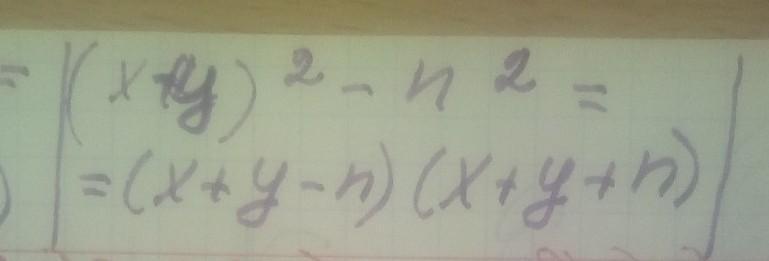 = |(x+y)² - n² =
=(x+y-n)(x+y+n)|